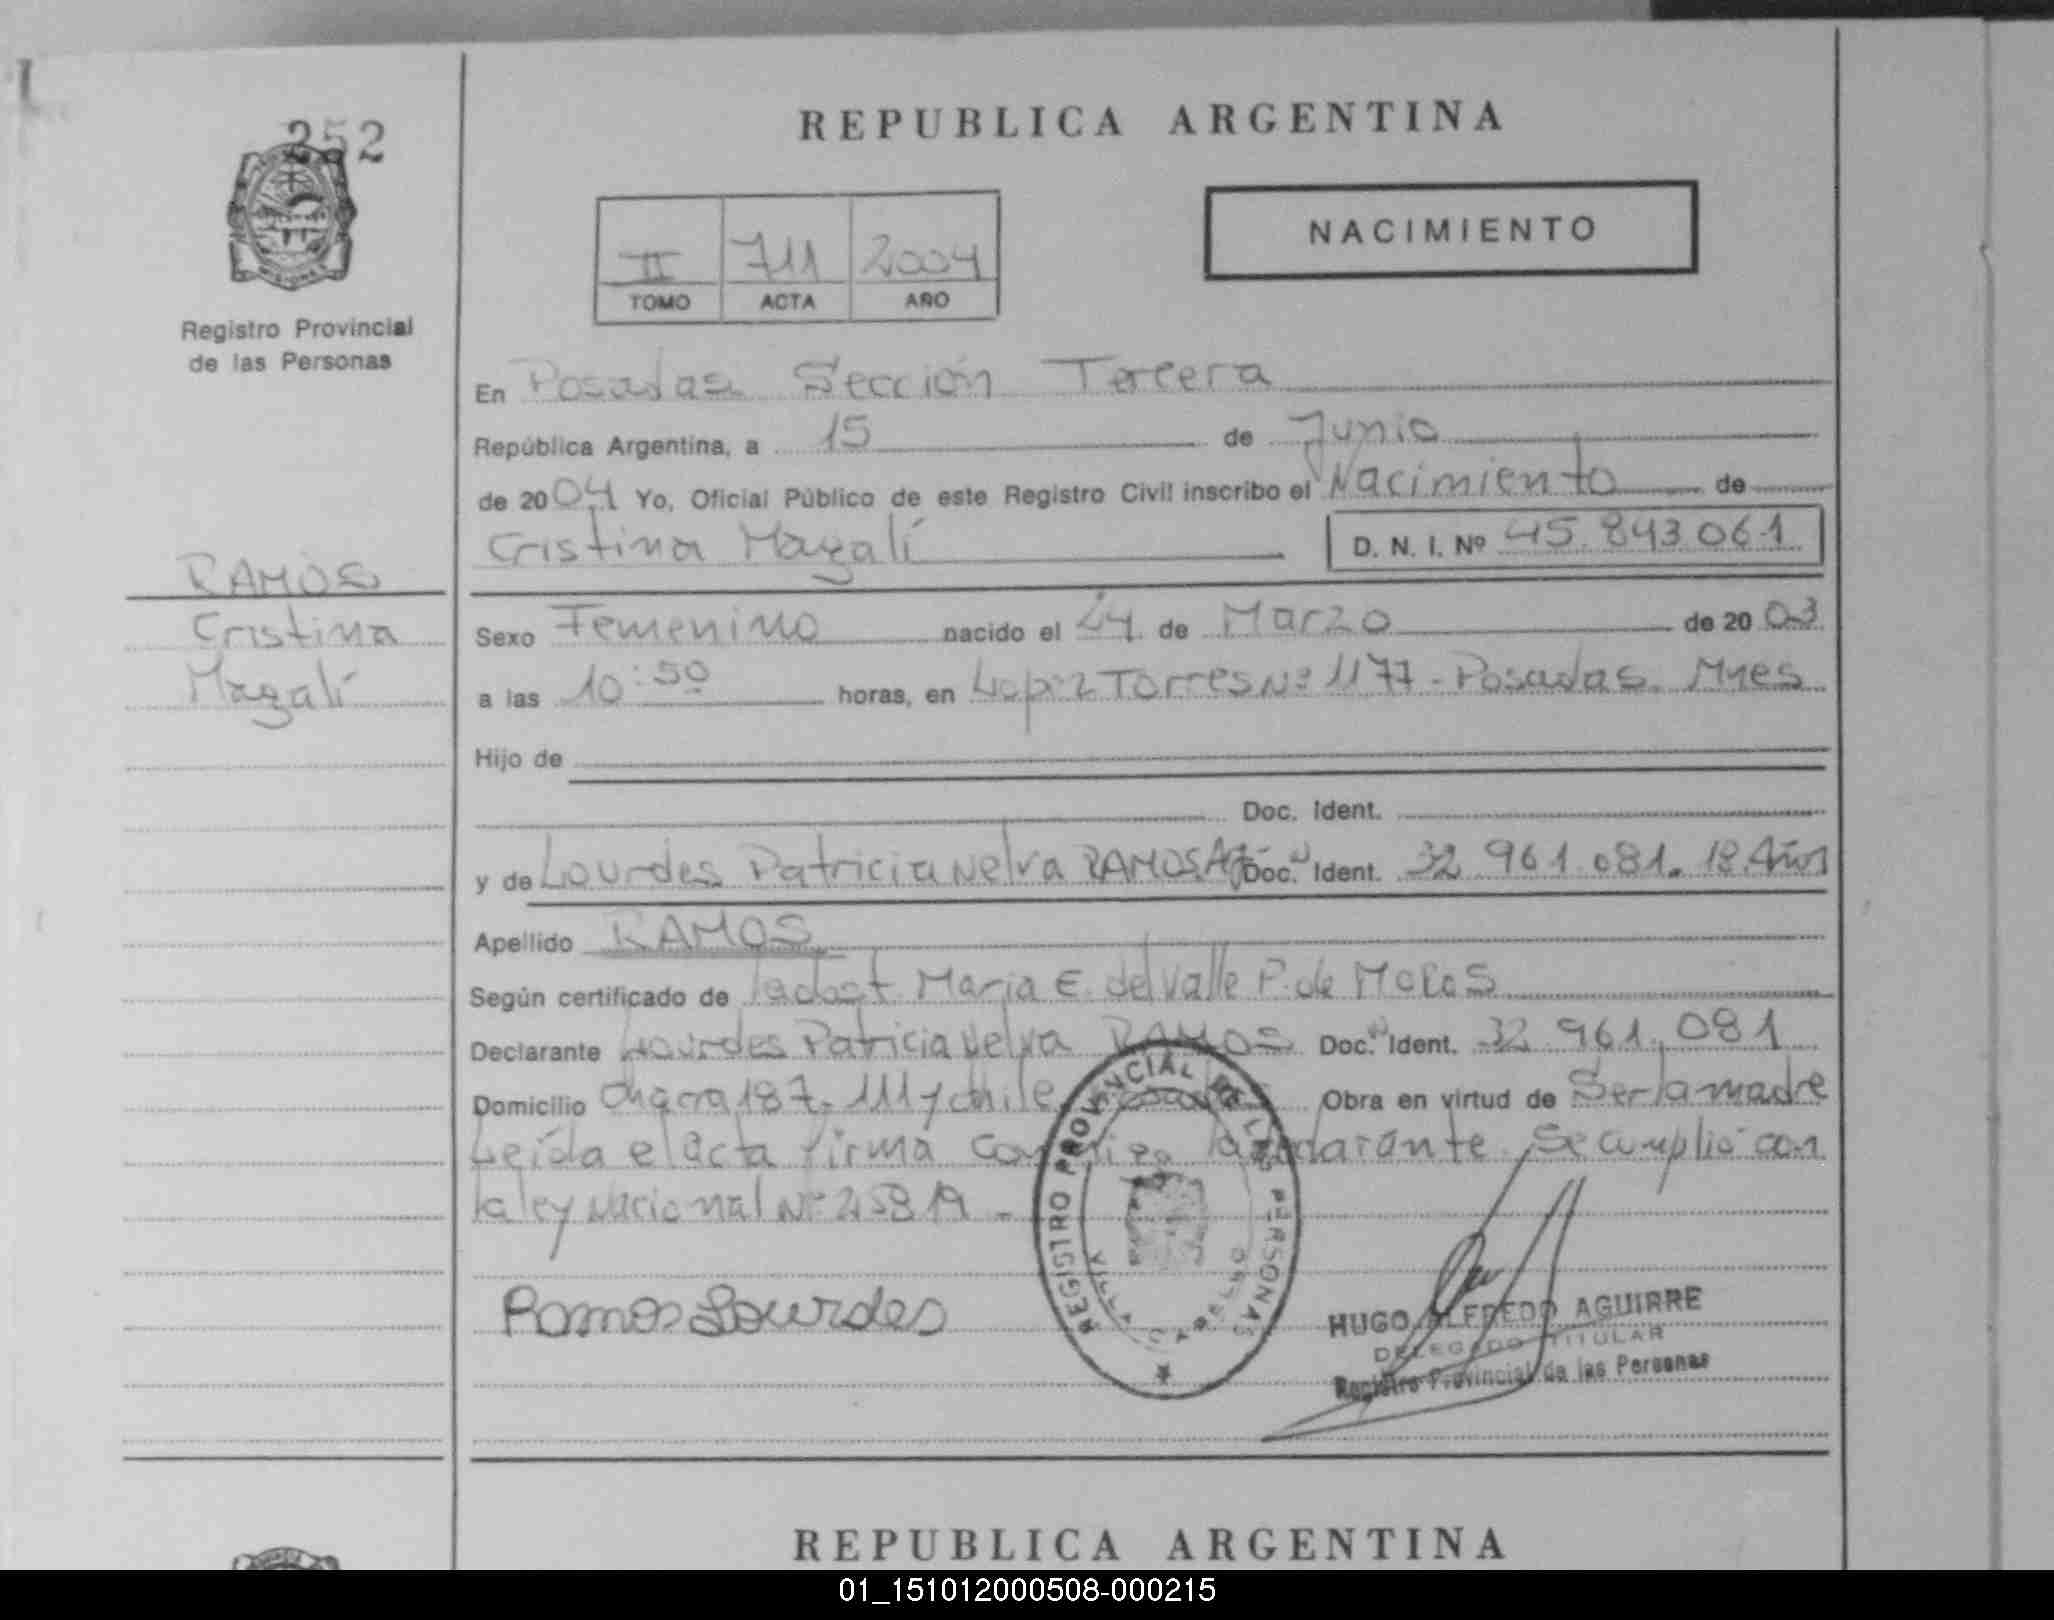 252
REPUBLICA ARGENTINA
NACIMIENTO
II 711 2004
TOMO ACTA AÑO
Registro Provincial
de las Personas
En Posadas Sección Tercera
República Argentina, a 15 de Junio
de 2004 Yo, Oficial Público de este Registro Civil inscribo el Nacimiento de
Cristina Magalí D. N. I. Nº 45.843.061
RAMOS
Cristina
Magalí
Sexo Femenino nacido el 24 de Marzo de 2003
a las 10:50 horas, en Lopez Torres Nº 1177 - Posadas. Mnes
Hijo de
Doc. Ident.
y de Lourdes Patricia Nelva RAMOS Doc. Ident. 32.961.081. 18 Años
Apellido RAMOS
Según certificado de la obst. Maria E. del Valle P. de
Declarante Lourdes Patricia Nelva RAMOS Doc. Ident. 32.961.081
Domicilio Chacra 187. 111 y Chile Obra en virtud de Ser la madre
Leída el acta firma la declarante. Se cumplió con
la ley Nacional Nº 25819 -
Ramos Lourdes
REGISTRO PROVINCIAL DE LAS PERSONAS
HUGO ALFREDO AGUIRRE
DELEGADO TITULAR
Registro Provincial de las Personas
REPUBLICA ARGENTINA
01_151012000508-000215